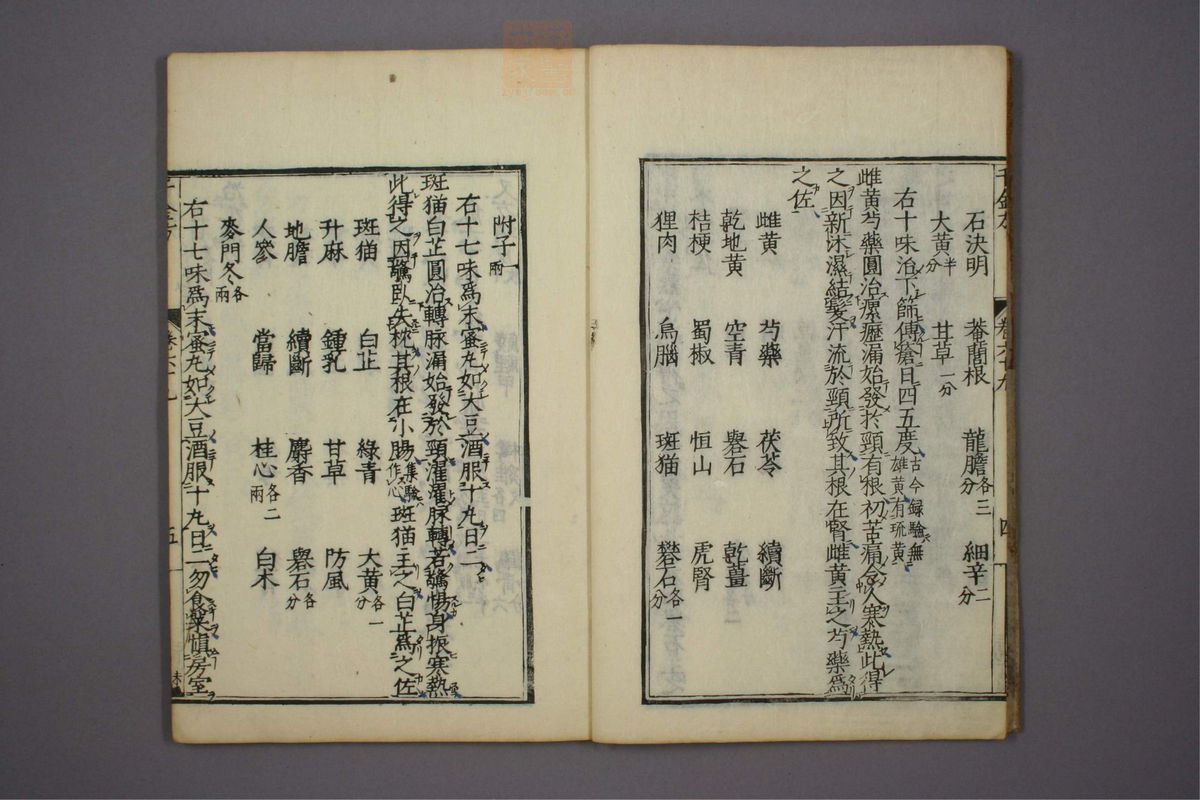 石決明　菴䕡根　龍膽各三分　細辛二分
大黃半分　甘草一分
右十味治下篩傅瘡日四五度古今録驗無雄黄有硫黄
雌黄芍藥圓治瘰癧漏始發於頸有根初苦痛令人寒熱此得
之因新沐濕結髮汗流於頸所致其根在腎雌黄主之芍藥爲
之佐
雌黄　芍藥　茯苓　續斷
乾地黄　空青　礜石　乾薑
桔梗　蜀椒　恒山　虎腎
狸肉　烏腦　斑猫　礬石各一分
卷六十九
四
附子一兩
右十七味爲末蜜丸如大豆酒服十丸日二
斑猫白芷圓治轉脉漏始發於頸濯濯脉轉若驚惕身振寒熱
此得之因驚臥失枕其根在小腸集驗作心斑猫主之白芷爲之佐
斑猫　白芷　綠青　大黄各一分
升麻　鍾乳　甘草　防風
地膽　續斷　麝香　礜石各分
人參　當歸　桂心各二兩　白朮
麥門冬各兩
右十七味爲末蜜丸如大豆酒服十丸日二勿食菜慎房室
千金方
五